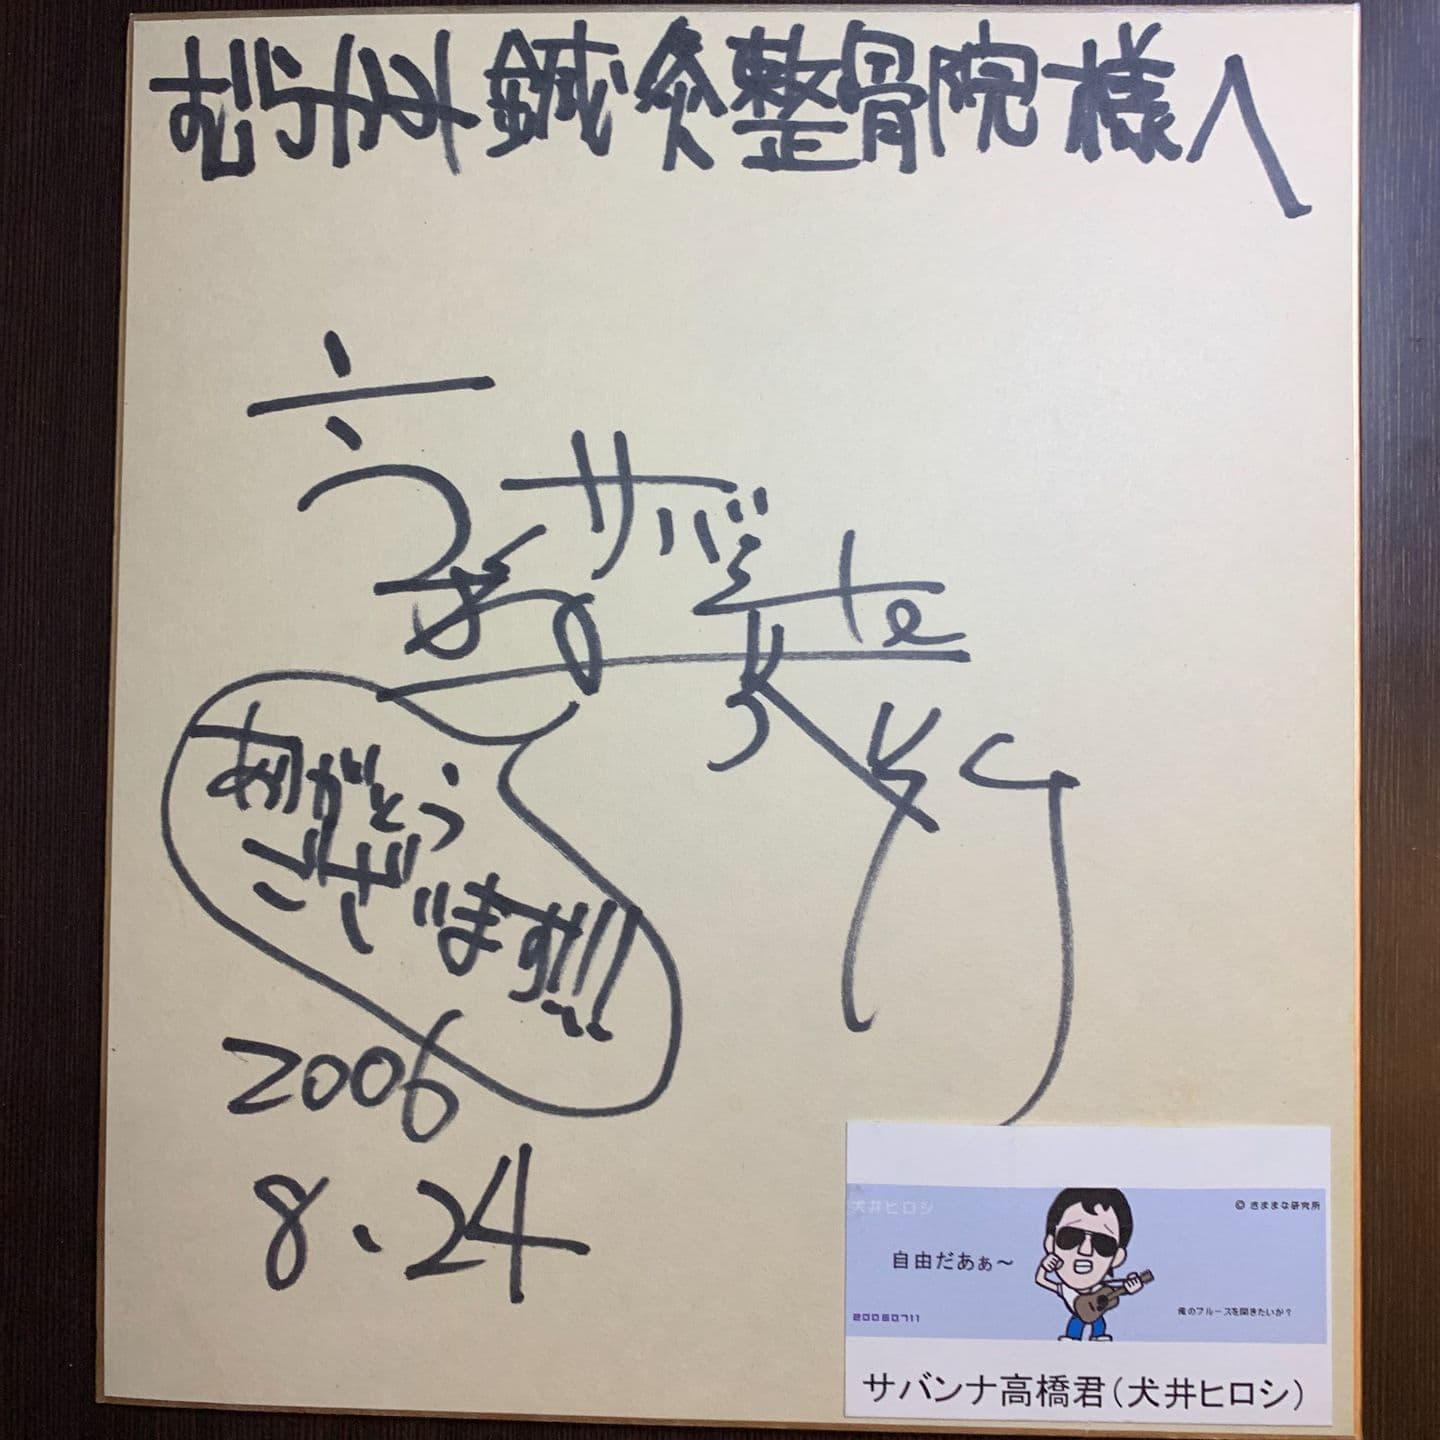 むらかみ鍼灸整骨院様へ
サバンナ
ありがとう
ございます!!!
2006
8.24
犬井ヒロシ
© きままな研究所
自由だあぁ～
20060711
俺のブルースを聞きたいか?
サバンナ高橋君(犬井ヒロシ)